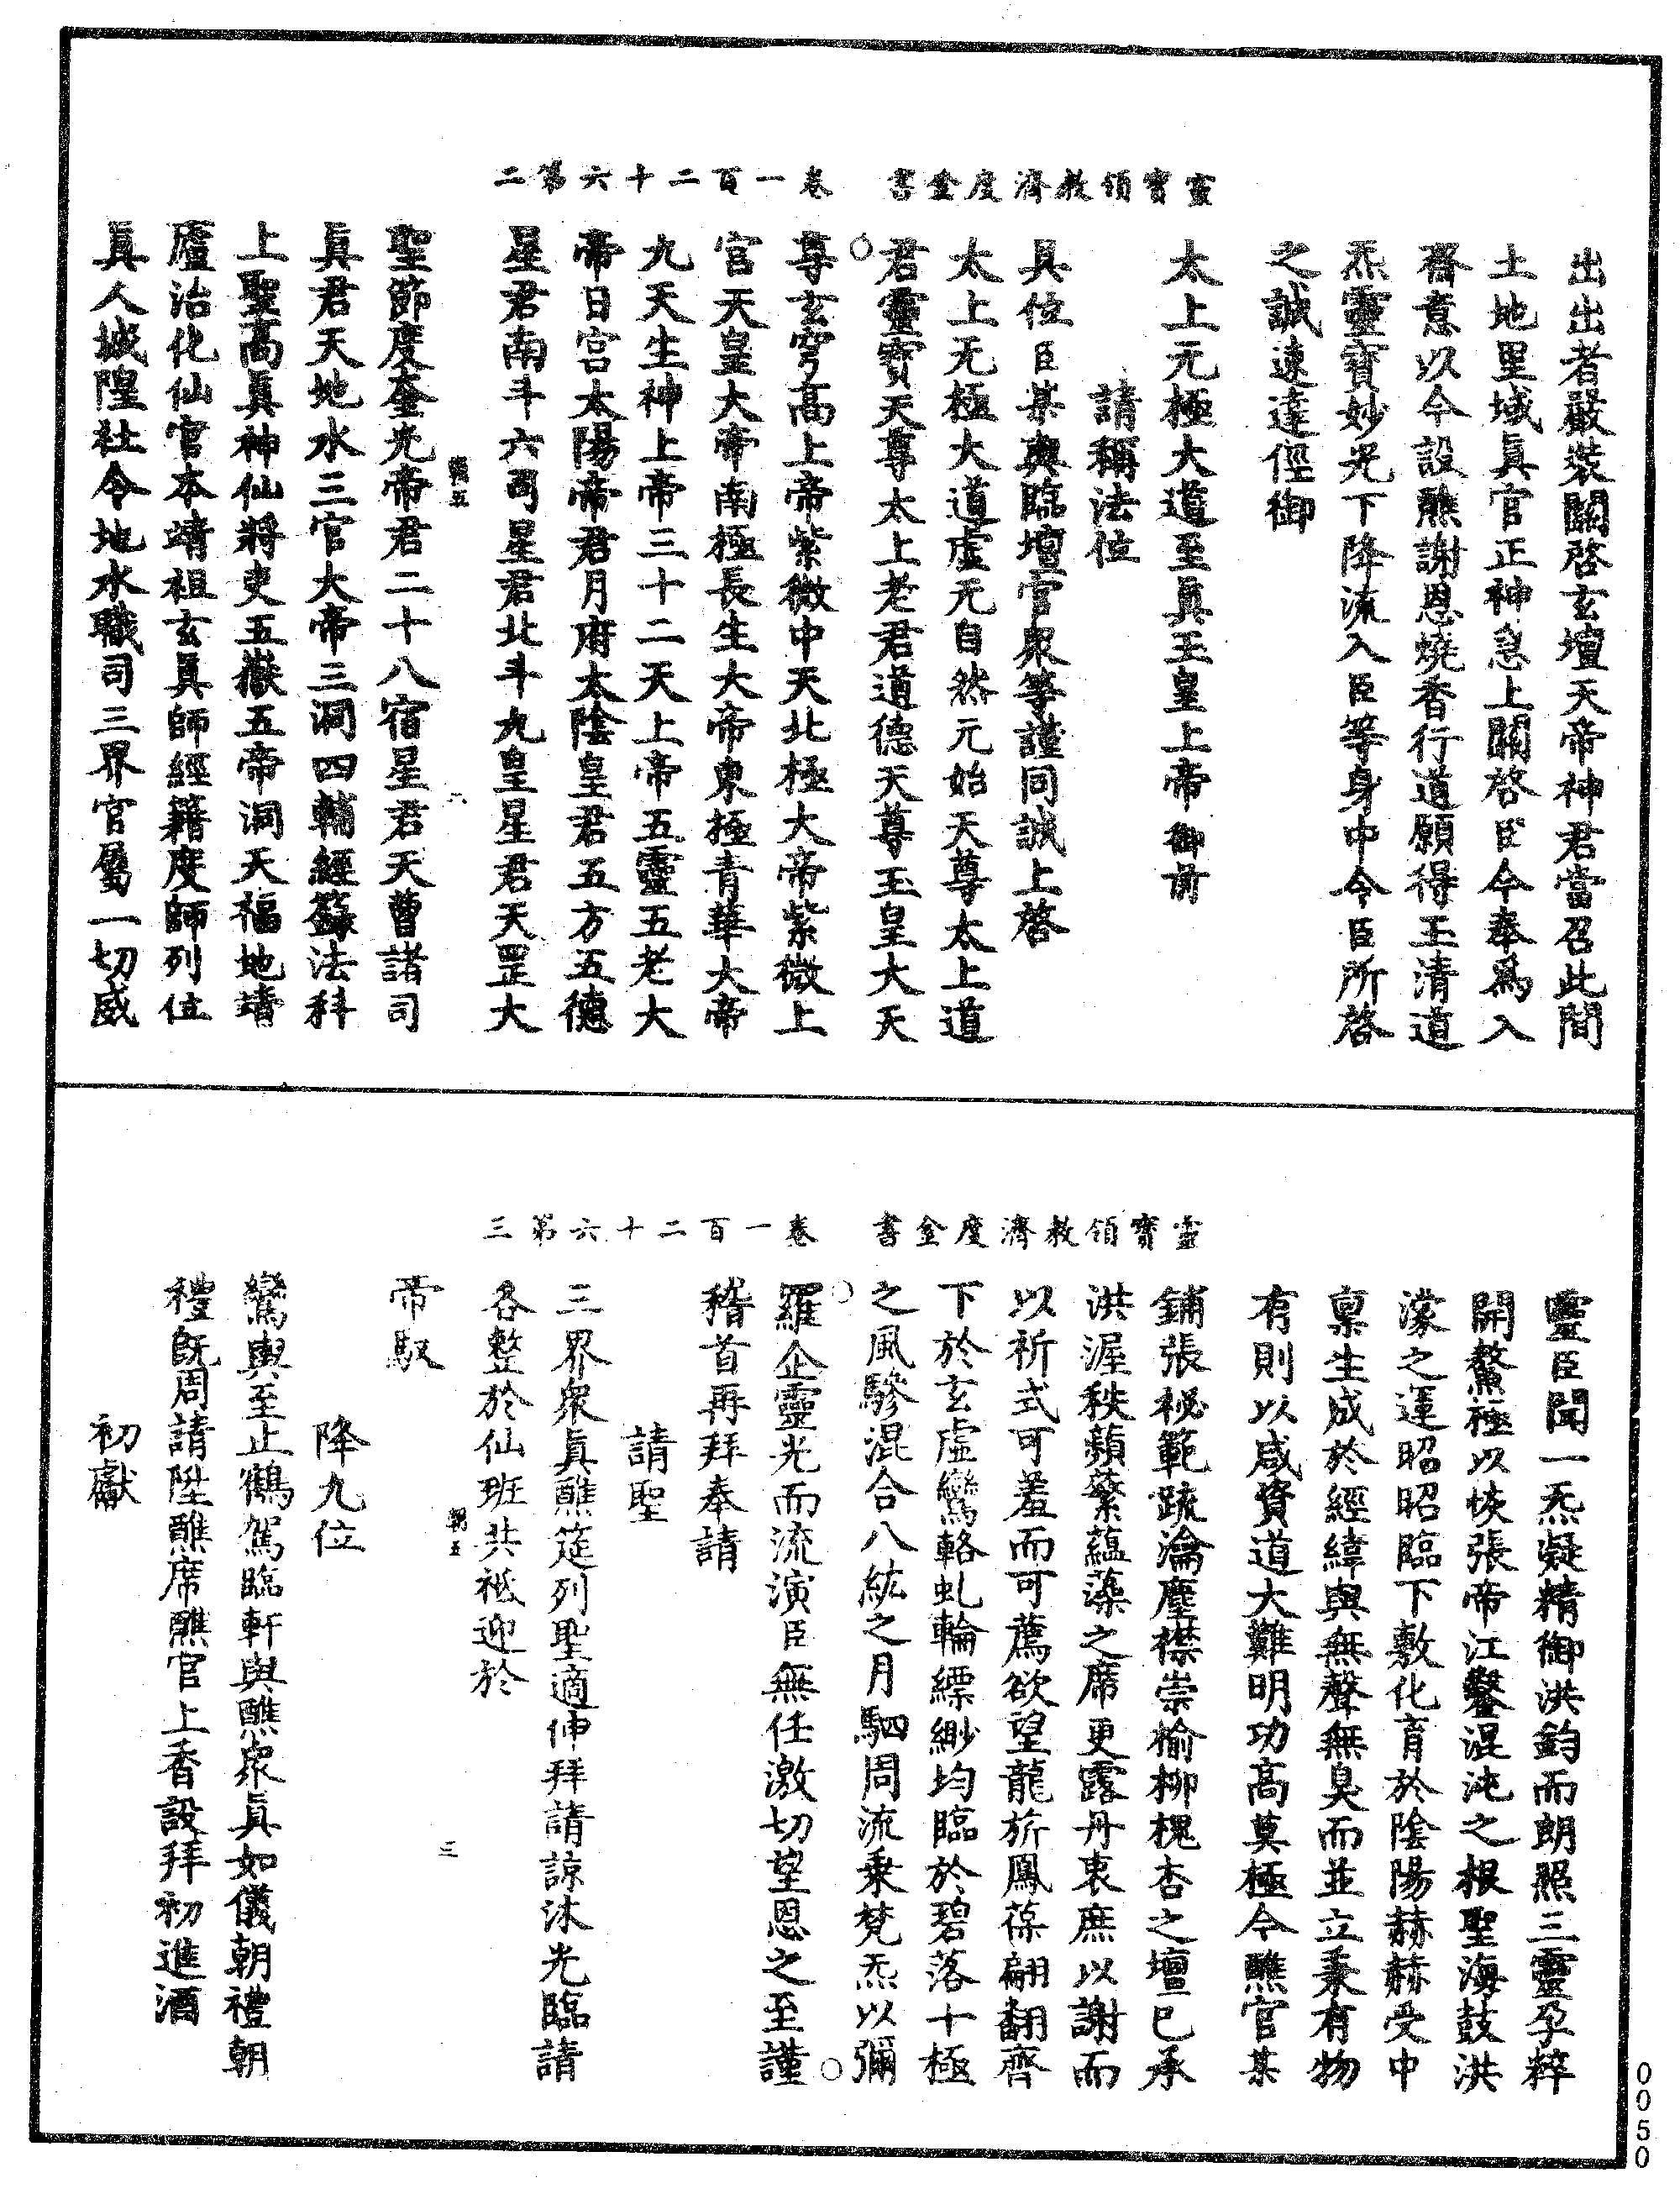 靈寶領教濟度金書　卷一百二十六第二
出出者嚴裝關啓玄壇天帝神君當召此間
土地里域眞官正神急上關啓臣今奉爲入
齋意以今設醮謝恩燒香行道願得王清道
炁靈寶妙光下降流入臣等身中令臣所啓
之誠速達徑御
太上元極大道至眞玉皇上帝御前
請稱法位
具位臣某與臨壇官衆等謹同誠上啓
太上无極大道虛无自然元始天尊太上道
君靈寶天尊太上老君道德天尊玉皇大天
尊玄穹高上帝紫微中天北極大帝紫微上
宮天皇大帝南極長生大帝東極青華大帝
九天生神上帝三十二天上帝五靈五老大
帝日宮太陽帝君月府太陰皇君五方五德
星君南斗六司星君北斗九皇星君天罡大
聖節度奎光帝君二十八宿星君天曹諸司
眞君天地水三官大帝三洞四輔經籙法科
上聖高眞神仙將吏五嶽五帝洞天福地靖
廬治化仙官本靖祖玄眞師經籍度師列位
眞人城隍社令地水職司三界官屬一切威
靈寶領教濟度金書　卷一百二十六第三
靈臣聞一炁凝精御洪鈞而朗照三靈孕粹
開鰲極以恢張帝江鑿混沌之根聖海鼓洪
濛之運昭昭臨下敷化育於陰陽赫赫受中
稟生成於經緯與無聲無臭而並立秉有物
有則以咸資道大難明功高莫極今醮官某
鋪張祕範疏瀹塵襟崇榆柳槐杏之壇已承
洪渥秩蘋蘩蘊藻之席更露丹衷庶以謝而
以祈式可羞而可薦欲望龍旂鳳葆翩翻齊
下於玄虛鸞輅虬輪縹緲均臨於碧落十極
之風驂混合八紘之月駟周流乗梵炁以彌
羅企靈光而流演臣無任激切望恩之至謹
稽首再拜奉請
請聖
三界衆眞醮筵列聖適伸拜請諒沐光臨請
各整於仙班共祗迎於
帝馭
降九位
鸞輿至止鶴駕臨軒與醮衆眞如儀朝禮朝
禮既周請陞醮席醮官上香設拜初進酒
初獻
0050